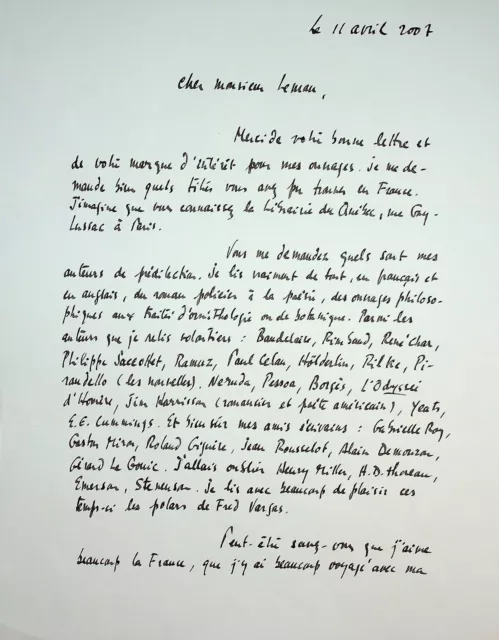 le 11 avril 2007
Cher monsieur Leman,
Merci de votre bonne lettre et
de votre marque d'intérêt pour mes ouvrages. Je me de-
mande bien quels titres vous avez pu trouver en France.
J'imagine que vous connaissez la Librairie du Québec, rue Gay-
Lussac à Paris.
Vous me demandez quels sont mes
auteurs de prédilection. Je lis vraiment de tout, en français et
en anglais, du roman policier à la poésie, des ouvrages philoso-
phiques aux traités d'ornithologie ou de botanique. Parmi les
auteurs que je relis volontiers : Baudelaire, Rimbaud, René Char,
Philippe Jaccottet, Ramuz, Paul Celan, Hölderlin, Rilke, Pi-
randello (les nouvelles), Neruda, Pessoa, Borgès, L'Odyssée
d'Homère, Jim Harrisson (romancier et poète américain), Yeats,
E.E. Cummings. Et bien sûr mes amis écrivains : Gabrielle Roy,
Gaston Miron, Roland Giguère, Jean Rousselot, Alain Demouzon,
Gérard Le Gouic. J'allais oublier Henry Miller, H.D. Thoreau,
Emerson, Stevenson. Je lis avec beaucoup de plaisir ces
temps-ci les polars de Fred Vargas.
Peut-être savez-vous que j'aime
beaucoup la France, que j'y ai beaucoup voyagé avec ma